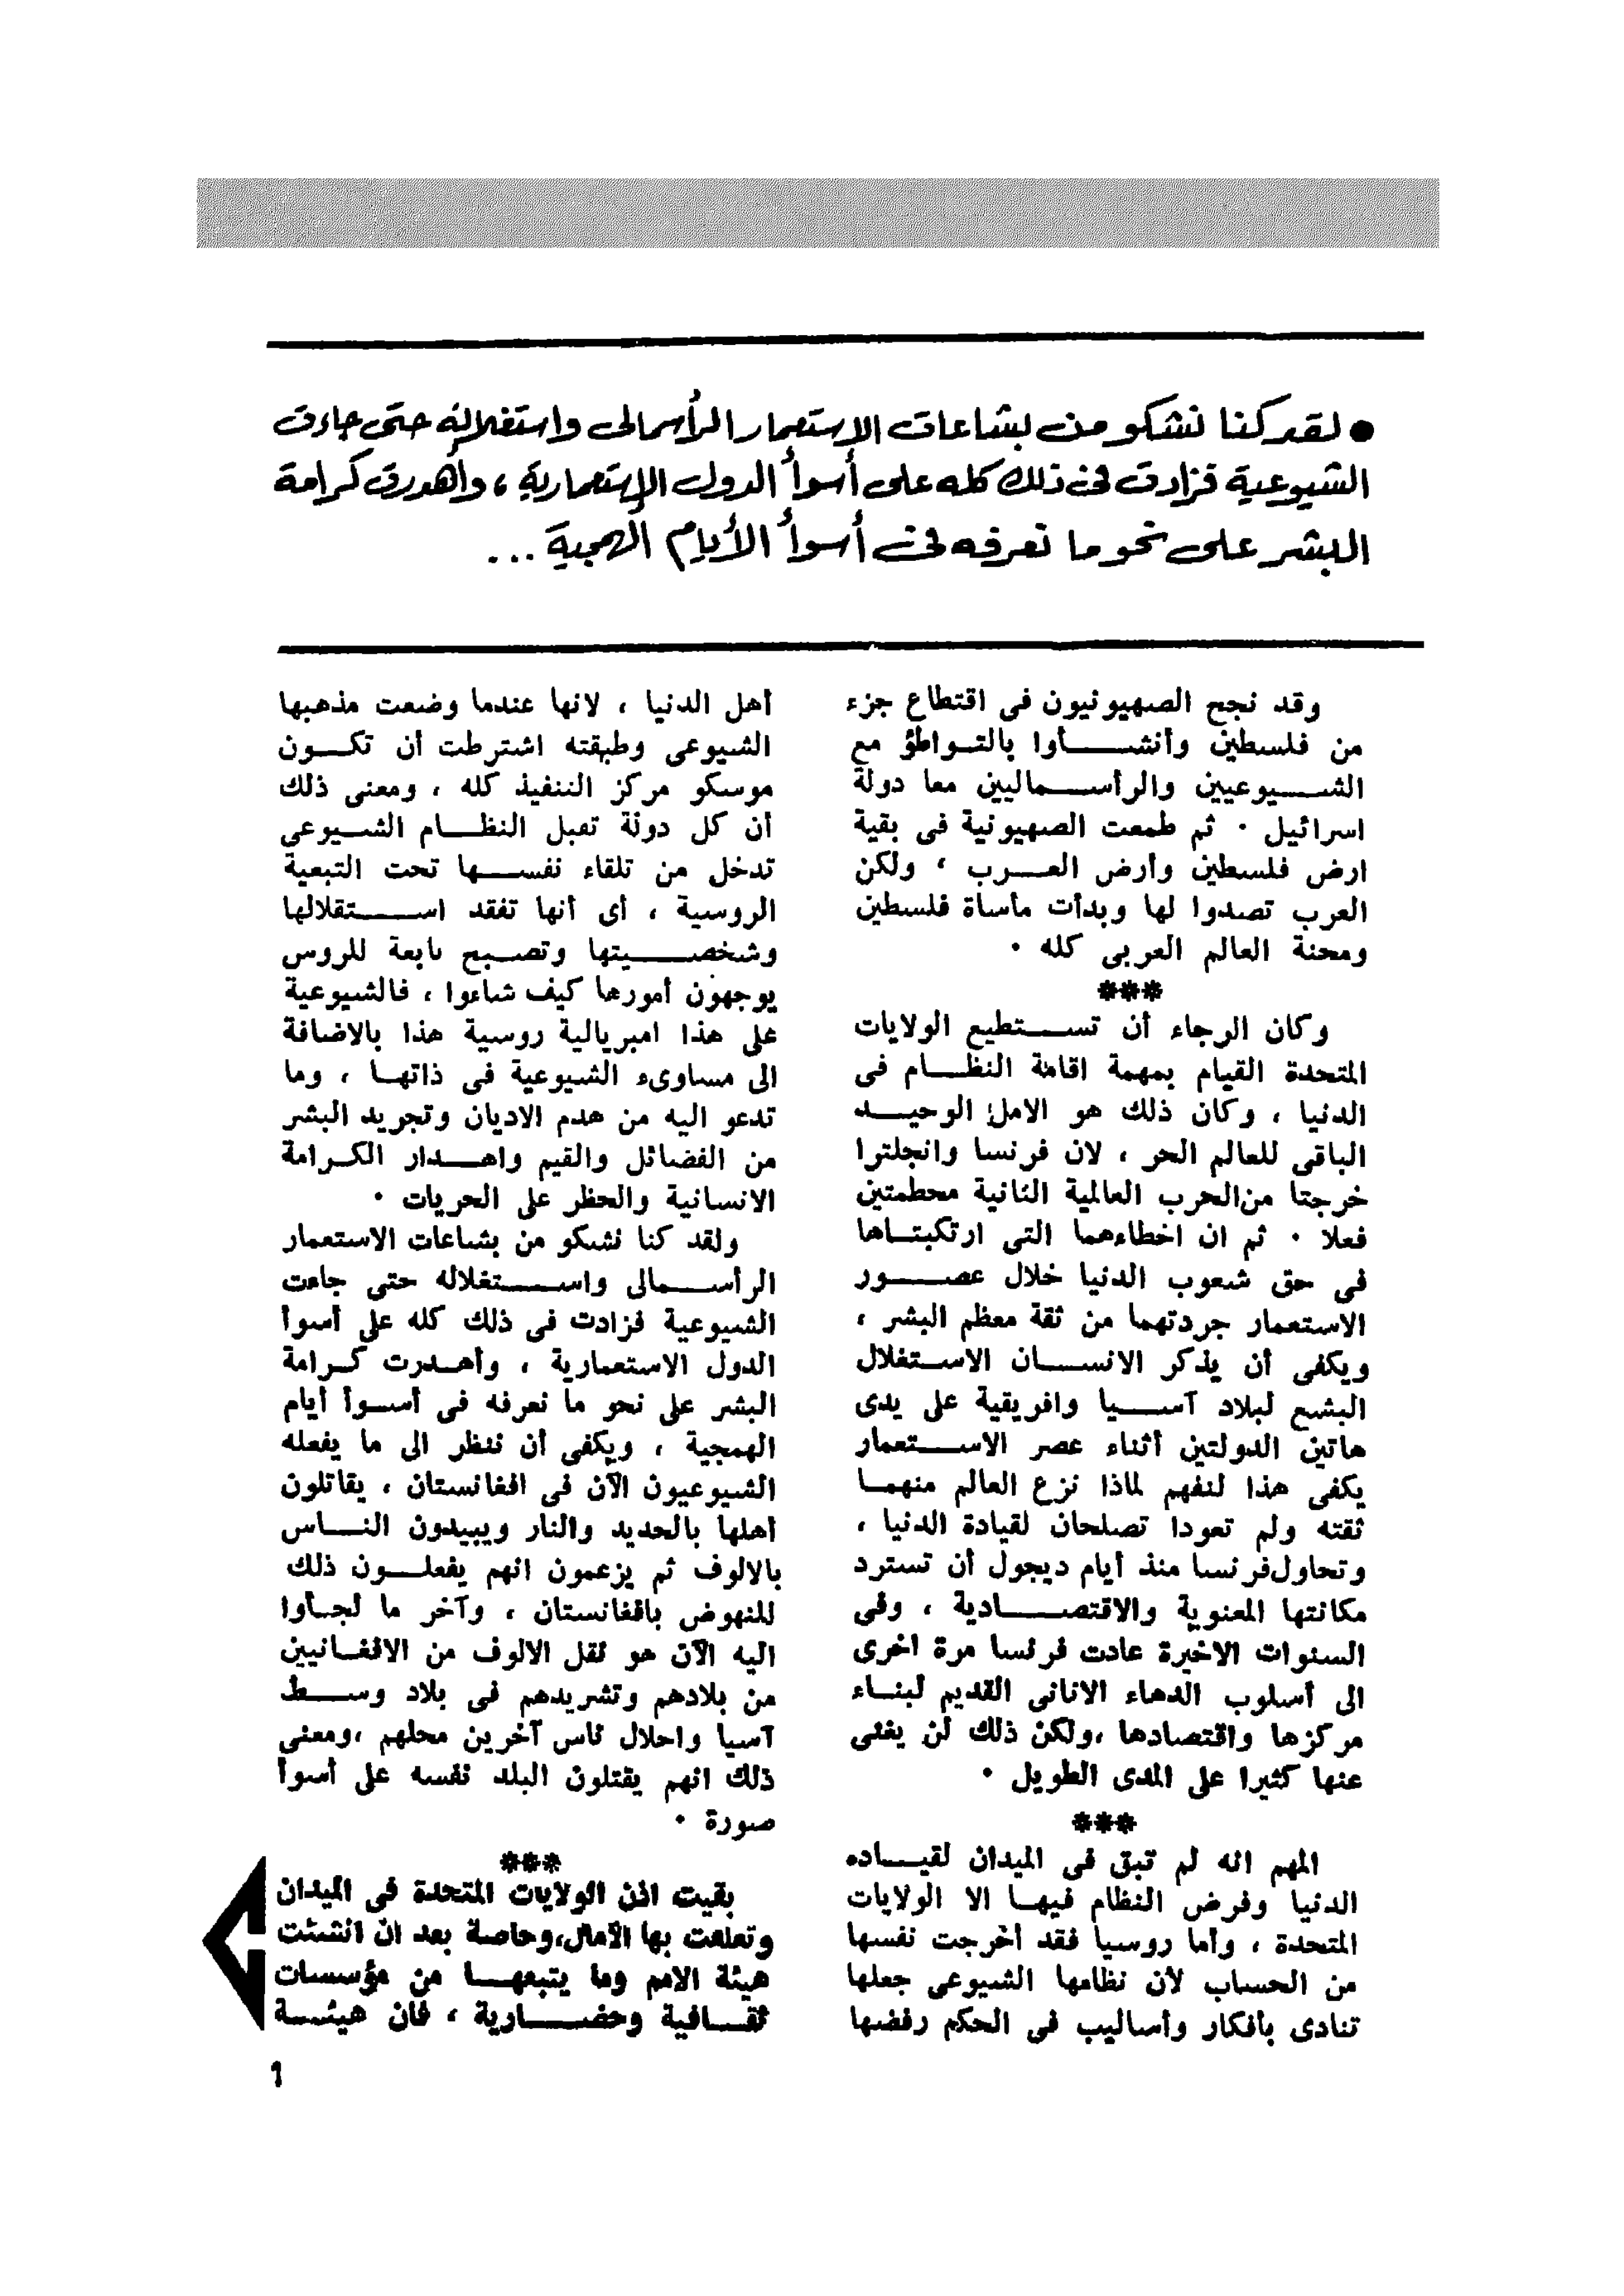 ● لقد كنا نشكو من بشاعات الاستعمار الرأسمالى واستغلاله حتى جاءت
الشيوعية فزادت فى ذلك كله على أسوأ الدول الاستعمارية ، وأهدرت كرامة
البشر على نحو ما نعرفه فى أسوأ الأيام الهمجية ...
وقد نجح الصهيونيون فى اقتطاع جزء
من فلسطين وأنشأوا بالتواطؤ مع
الشيوعيين والرأسماليين معا دولة
اسرائيل . ثم طمعت الصهيونية فى بقية
ارض فلسطين وأرض العرب ، ولكن
العرب تصدوا لها وبدأت مأساة فلسطين
ومحنة العالم العربى كله .
***
وكان الرجاء أن تستطيع الولايات
المتحدة القيام بمهمة اقامة النظام فى
الدنيا ، وكان ذلك هو الامل الوحيد
الباقى للعالم الحر ، لان فرنسا وانجلترا
خرجتا من الحرب العالمية الثانية محطمتين
فعلا . ثم ان اخطاءهما التى ارتكبتاها
فى حق شعوب الدنيا خلال عصور
الاستعمار جردتهما من ثقة معظم البشر ،
ويكفى أن يذكر الانسان الاستغلال
البشع لبلاد آسيا وافريقية على يدى
هاتين الدولتين أثناء عصر الاستعمار
يكفى هذا لنفهم لماذا نزع العالم منهما
ثقته ولم تعودا تصلحان لقيادة الدنيا ،
وتحاول فرنسا منذ أيام ديجول أن تسترد
مكانتها المعنوية والاقتصادية ، وفى
السنوات الاخيرة عادت فرنسا مرة اخرى
الى أسلوب الدهاء الانانى القديم لبناء
مركزها واقتصادها ،ولكن ذلك لن يغنى
عنها كثيرا على المدى الطويل .
***
المهم انه لم تبق فى الميدان لقياده
الدنيا وفرض النظام فيها الا الولايات
المتحدة ، وأما روسيا فقد أخرجت نفسها
من الحساب لأن نظامها الشيوعى جعلها
تنادى بأفكار وأساليب فى الحكم رفضها
أهل الدنيا ، لانها عندما وضعت مذهبها
الشيوعى وطبقته اشترطت أن تكون
موسكو مركز التنفيذ كله ، ومعنى ذلك
أن كل دولة تقبل النظام الشيوعى
تدخل من تلقاء نفسها تحت التبعية
الروسية ، أى أنها تفقد استقلالها
وشخصيتها وتصبح تابعة للروس
يوجهون أمورها كيف شاءوا ، فالشيوعية
على هذا امبريالية روسية هذا بالاضافة
الى مساوىء الشيوعية فى ذاتها ، وما
تدعو اليه من هدم الاديان وتجريد البشر
من الفضائل والقيم واهدار الكرامة
الانسانية والحظر على الحريات .
ولقد كنا نشكو من بشاعات الاستعمار
الرأسمالى واستغلاله حتى جاءت
الشيوعية فزادت فى ذلك كله على أسوأ
الدول الاستعمارية ، وأهدرت كرامة
البشر على نحو ما نعرفه فى أسوأ أيام
الهمجية ، ويكفى أن ننظر الى ما يفعله
الشيوعيون الآن فى افغانستان ، يقاتلون
أهلها بالحديد والنار ويبيدون الناس
بالالوف ثم يزعمون انهم يفعلون ذلك
للنهوض بافغانستان ، وآخر ما لجأوا
اليه الآن هو نقل الالوف من الافغانيين
من بلادهم وتشريدهم فى بلاد وسط
آسيا واحلال ناس آخرين محلهم ،ومعنى
ذلك انهم يقتلون البلد نفسه على أسوأ
صورة .
***
بقيت اذن الولايات المتحدة فى الميدان
وتعلقت بها الآمال،وخاصة بعد ان انشئت
هيئة الامم وما يتبعها من مؤسسات
ثقافية وحضارية ، فان هيئة